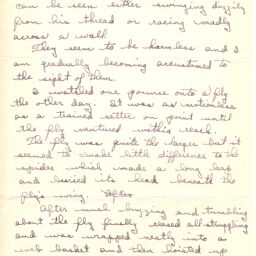 can be seen either swinging dizzily
from his thread or racing madly
across a wall.
They seem to be harmless and I
am gradually becoming accustomed to
the sight of them.
I watched one pounce onto a fly
the other day. It was as motionless
as a trained setter on point until
the fly ventured within reach.
The fly was quite the larger but it
seemed to make little difference to the
spider which made a long leap
and buried its head beneath the
fly's wing. After
After much buzzing and tumbling
about the fly finally ceased all struggling
and was wrapped neatly into a
web basket and then hoisted up